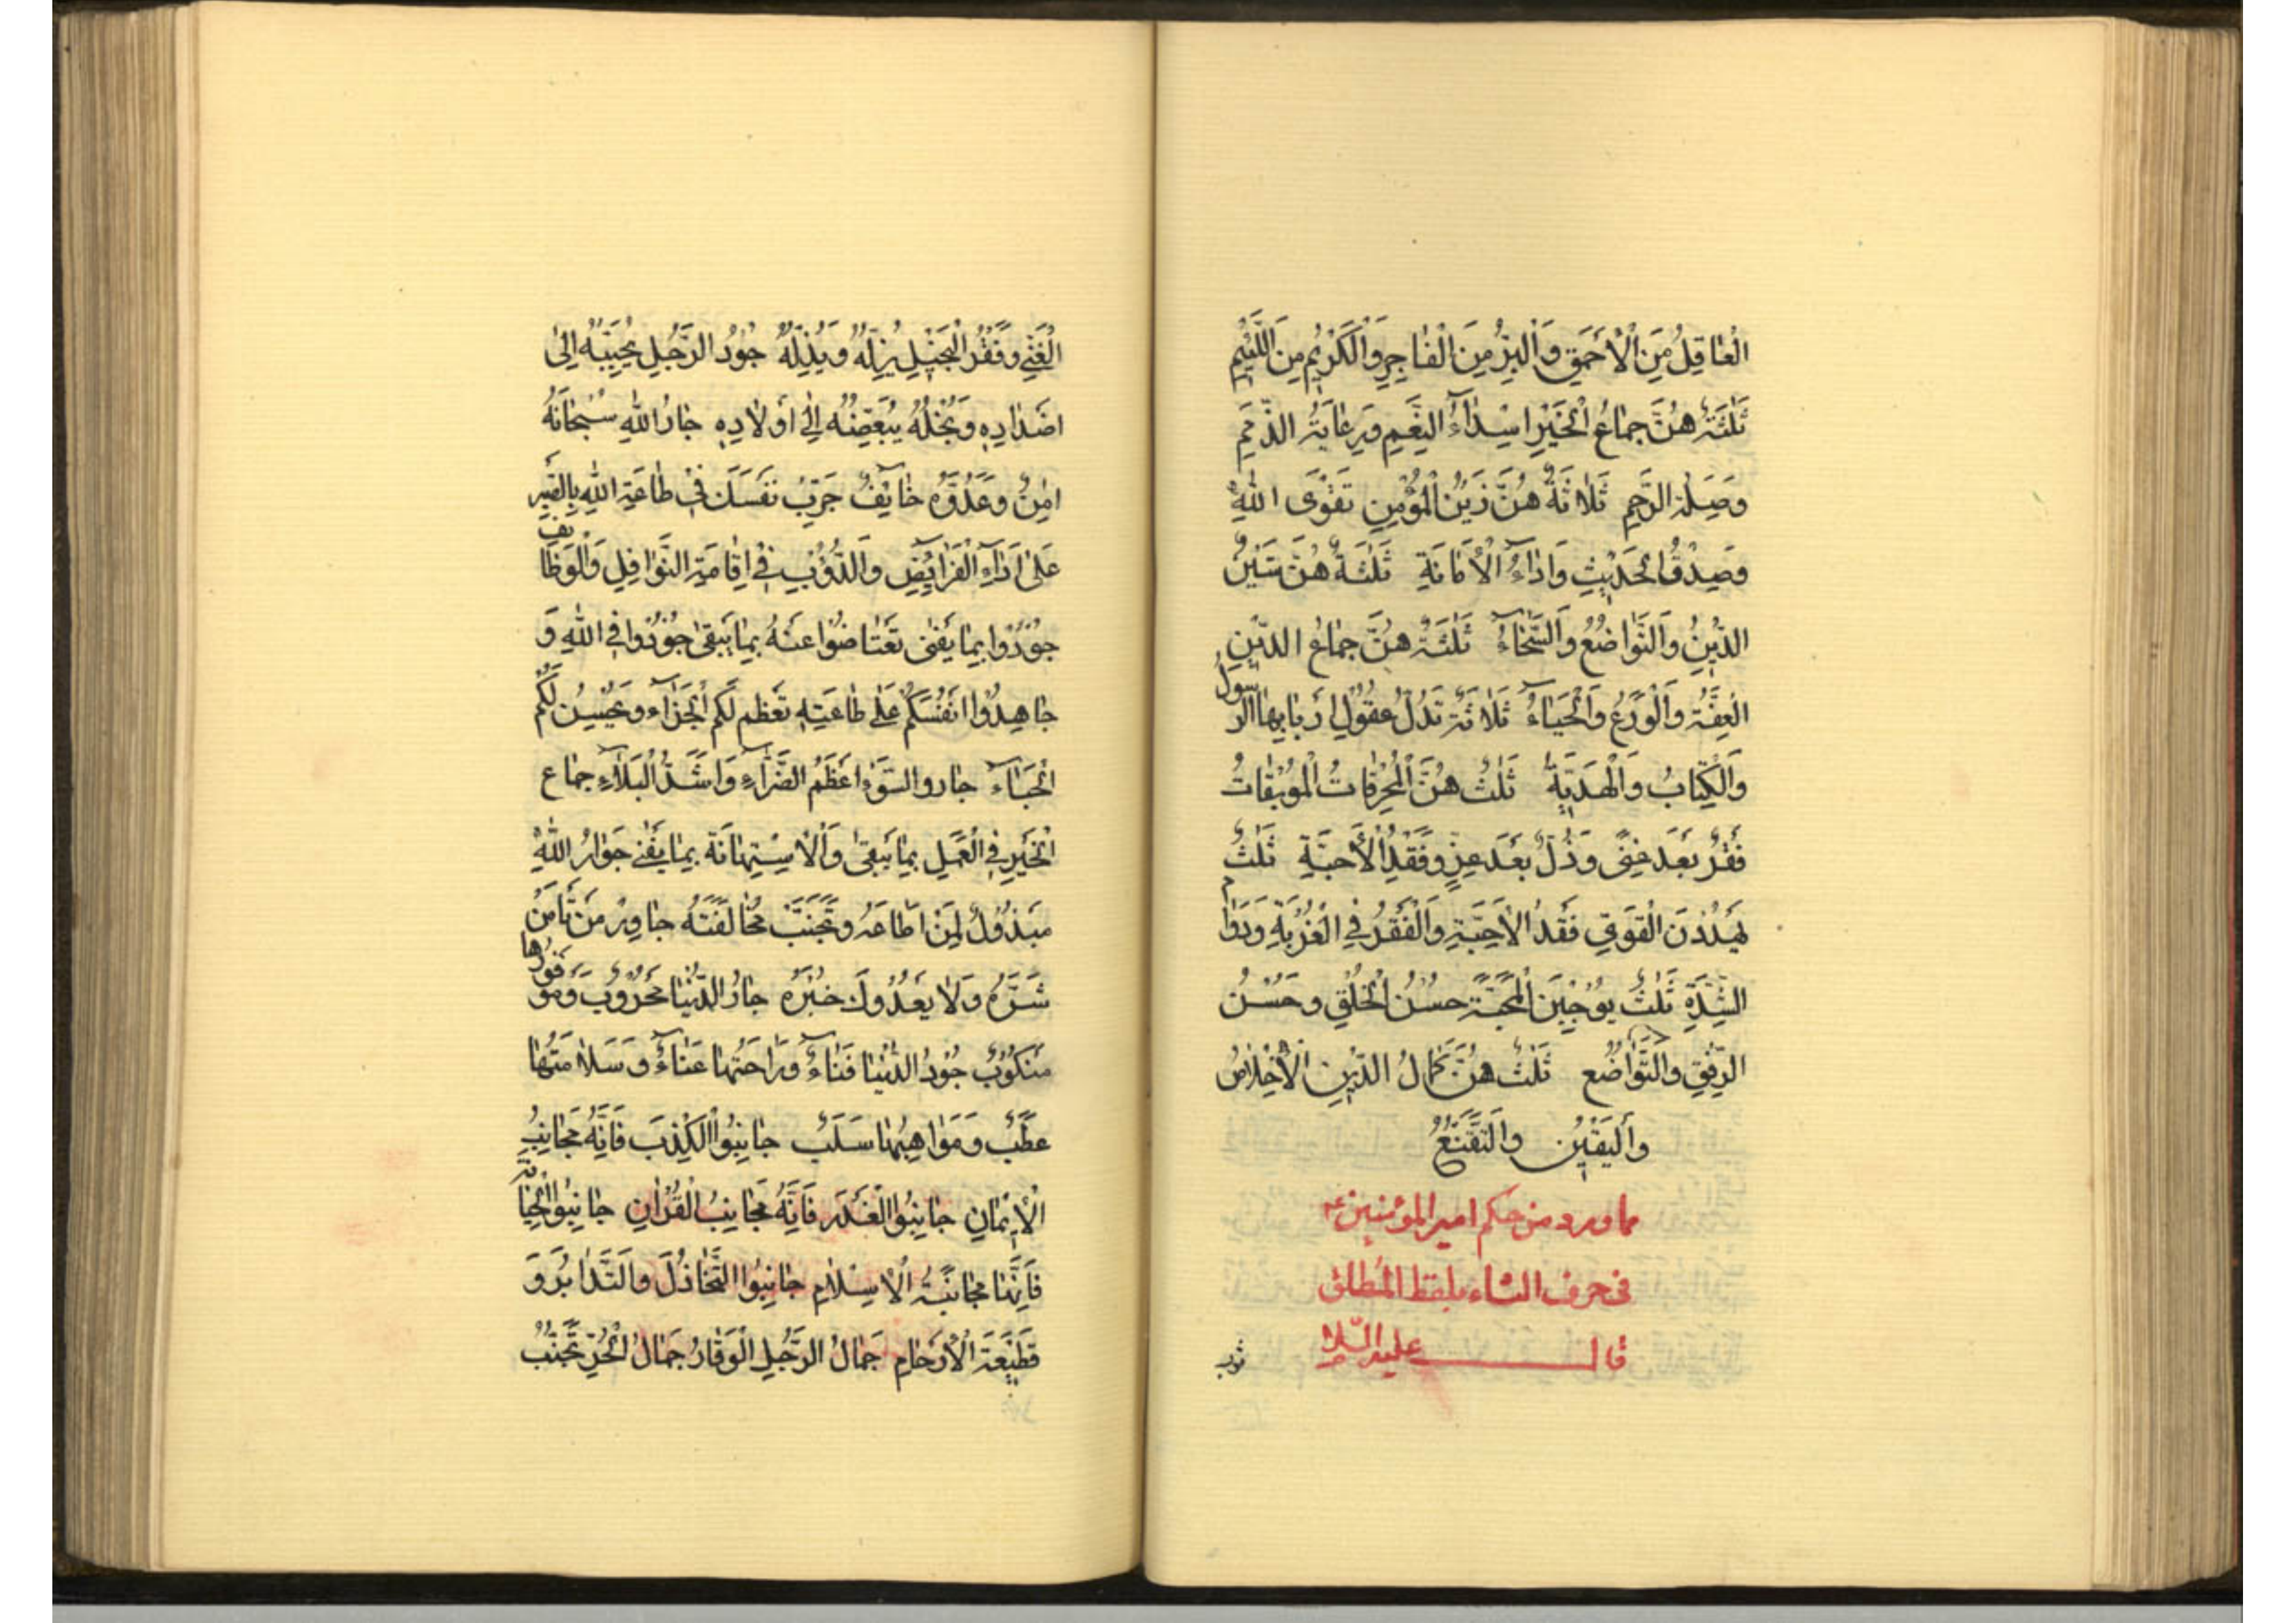 الْعَاقِلُ مِنَ الْأَحْمَقِ وَالْبَرُّ مِنَ الْفَاجِرِ وَالْكَرِيمُ مِنَ اللَّئِيمِ
ثَلٰثَةٌ هُنَّ جِمَاعُ الْخَيْرِ اسْدَاءُ النِّعَمِ وَرِعَايَةُ الذِّمَمِ
وَصِلَةُ الرَّحِمِ ثَلَاثَةٌ هُنَّ زَيْنُ الْمُؤْمِنِ تَقْوَى اللّٰهِ
وَصِدْقُ الْحَدِيثِ وَادَاءُ الْأَمَانَةِ ثَلٰثَةٌ هُنَّ شَيْنُ
الدِّينِ وَالتَّوَاضُعُ وَالسَّخَاءُ ثَلٰثَةٌ هُنَّ جِمَاعُ الدِّينِ
الْعِفَّةُ وَالْوَرَعُ وَالْحَيَاءُ ثَلَاثَةٌ تَدُلُّ عُقُولِ أَرْبَابِهَا الرَّسُولُ
وَالْكِتَابُ وَالْهَدِيَّةُ ثَلٰثٌ هُنَّ الْمُحْرِقَاتُ الْمُوبِقَاتُ
فَقْرٌ بَعْدَ غِنًى وَذُلٌّ بَعْدَ عِزٍّ وَفَقْدُ الْأَحِبَّةِ ثَلٰثٌ
يَهْدُدْنَ الْقَوِيَ فَقْدُ الْأَحِبَّةِ وَالْفَقْرُ فِي الْغُرْبَةِ وَدَوَامُ
الشِّدَّةِ ثَلٰثٌ يُوجِبْنَ الْمَحَبَّةَ حُسْنُ الْخُلْقِ وَحُسْنُ
الرِّفْقِ وَالتَّوَاضُعِ ثَلٰثٌ هُنَّ كَمَالُ الدِّينِ الْأِخْلَاصُ
وَالْيَقِينُ وَالتَّقَنُّعُ
مما ورد من حكم امير المؤمنين ع
فى حرف الثاء بلفظ المطلق
قال عليه السلام
الْغَنِيِّ وَفَقْرُ الْبَخِيلِ يُزِلُّهُ وَيُذِلُّهُ جُودُ الرَّجُلِ يُحَبِّبُهُ إِلىٰ
اضْدَادِهِ وَبُخْلُهُ يُبَغِّضُهُ إِلىٰ أَوْلَادِهِ جَارُ اللّٰهِ سُبْحَانَهُ
اٰمِنٌ وَعَدُوُّهُ خَائِفٌ جَرِّبْ نَفْسَكَ فِى طَاعَةِ اللّٰهِ بِالصَّبْرِ
عَلىٰ أَدَاءِ الْفَرَائِضِ وَالدُّؤُبِ فِى إِقَامَةِ النَّوَافِلِ وَالْوَظَائِفِ
جُودُوا بِمَا يَفْنىٰ تَعْتَاضُوا عَنْهُ بِمَا يَبْقىٰ جُودُوا فِى اللّٰهِ وَ
جَاهِدُوا انْفُسَكُمْ عَلىٰ طَاعَتِهِ تَعْظُمْ لَكُمُ الْجَزَاءَ وَيَحْسُنُ لَكُمْ
الْحَبَاءَ جار والسَّوْءِ اعْظَمُ الضَّرَّاءِ وَاشَدُّ الْبَلَاءِ جماع
الْخَيْرِ فِى الْعَمَلِ بِمَا يَبْقىٰ وَالْاسْتِهَانَةِ بِمَا يَفْنىٰ جَوَارُ اللّٰهِ
مَبْذُولٌ لِمَنْ اطَاعَهُ وَتَجَنَّبَ مُخَالَفَتَهُ جَاوِرْ مَنْ تَأْمَنُ
شَرَّهُ وَلَا يَعْدُوكَ خَيْرُهُ جَارُ الدُّنْيَا مَحْرُوبٌ وَمَوْفُورُهَا
مَنْكُوبٌ جُودُ الدُّنْيَا فَنَاءٌ وَرَاحَتُهَا عَنَاءٌ وَسَلَامَتُهَا
عَطَبٌ وَمَوَاهِبُهَا سَلَبٌ جَانِبُوا الْكِذْبَ فَانَّهُ مُجَانِبُ
الْأِيْمَانِ جَانِبُوا الْغَدْرَ فَانَّهُ مُجَانِبُ الْقُرْاٰنِ جَانِبُوا الْخِيَانَةَ
فَانَّهَا مُجَانَبَةُ الْاسْلَامِ جَانِبُوا التَّخَاذُلَ وَالتَّدَابُرَ وَ
قَطِيعَةَ الْأَرْحَامِ جَمَالُ الرَّجُلِ الْوَقَارُ جَمَالُ الْحُرِّ تَجَنُّبُ